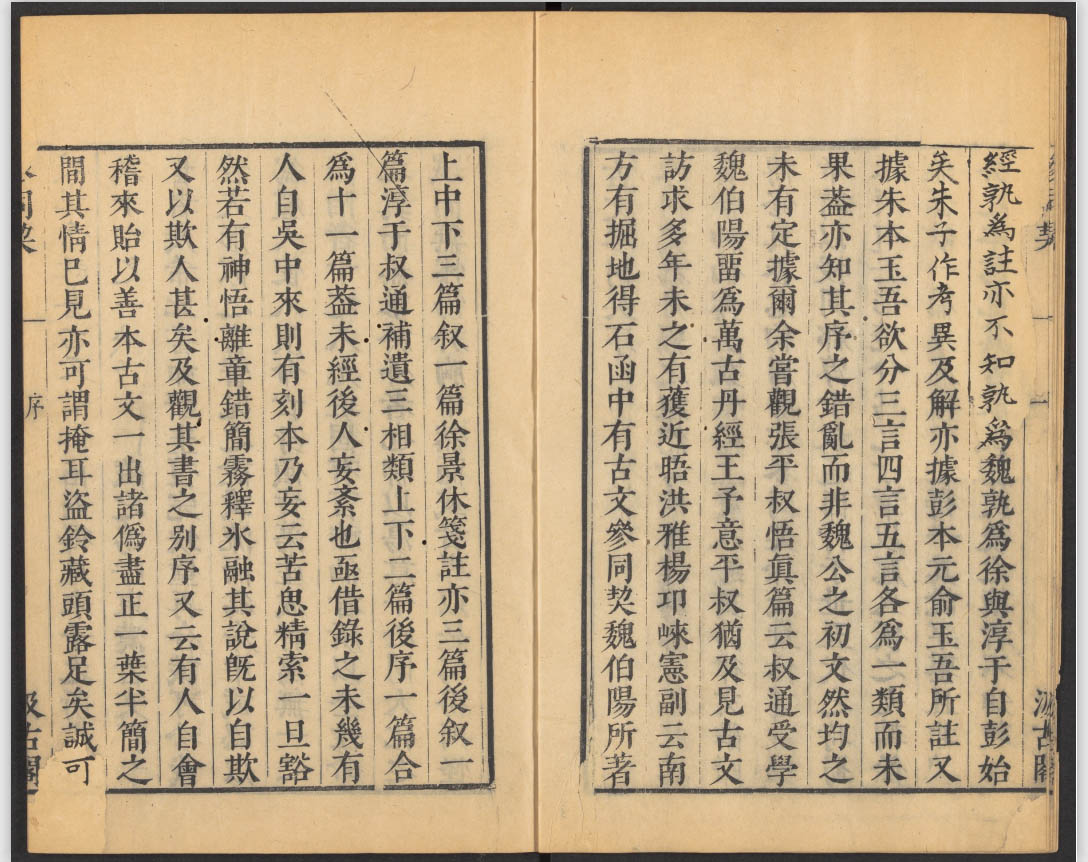 經孰為註亦不知孰為魏孰爲徐與淳于自彭始
矣朱子作考異及解亦據彭本元俞玉吾所註又
據朱本玉吾欲分三言四言五言各爲一類而未
果葢亦知其序之錯亂而非魏公之初文然均之
未有定據爾余嘗觀張平叔悟眞篇云叔通受學
魏伯陽畱爲萬古丹經王予意平叔猶及見古文
訪求多年未之有獲近晤洪雅楊卭崍憲副云南
方有掘地得石函中有古文參同契魏伯陽所著
上中下三篇叙一篇徐景休箋註亦三篇後叙一
篇淳于叔通補遺三相類上下二篇後序一篇合
爲十一篇葢未經後人妄紊也亟借錄之未幾有
人自吳中來則有刻本乃妄云苦思精索一旦豁
然若有神悟離章錯簡霧釋氷融其說旣以自欺
又以欺人甚矣及觀其書之别序又云有人自會
稽來貽以善本古文一出諸偽盡正一葉半簡之
間其情已見亦可謂掩耳盜鈴藏頭露足矣誠可
序